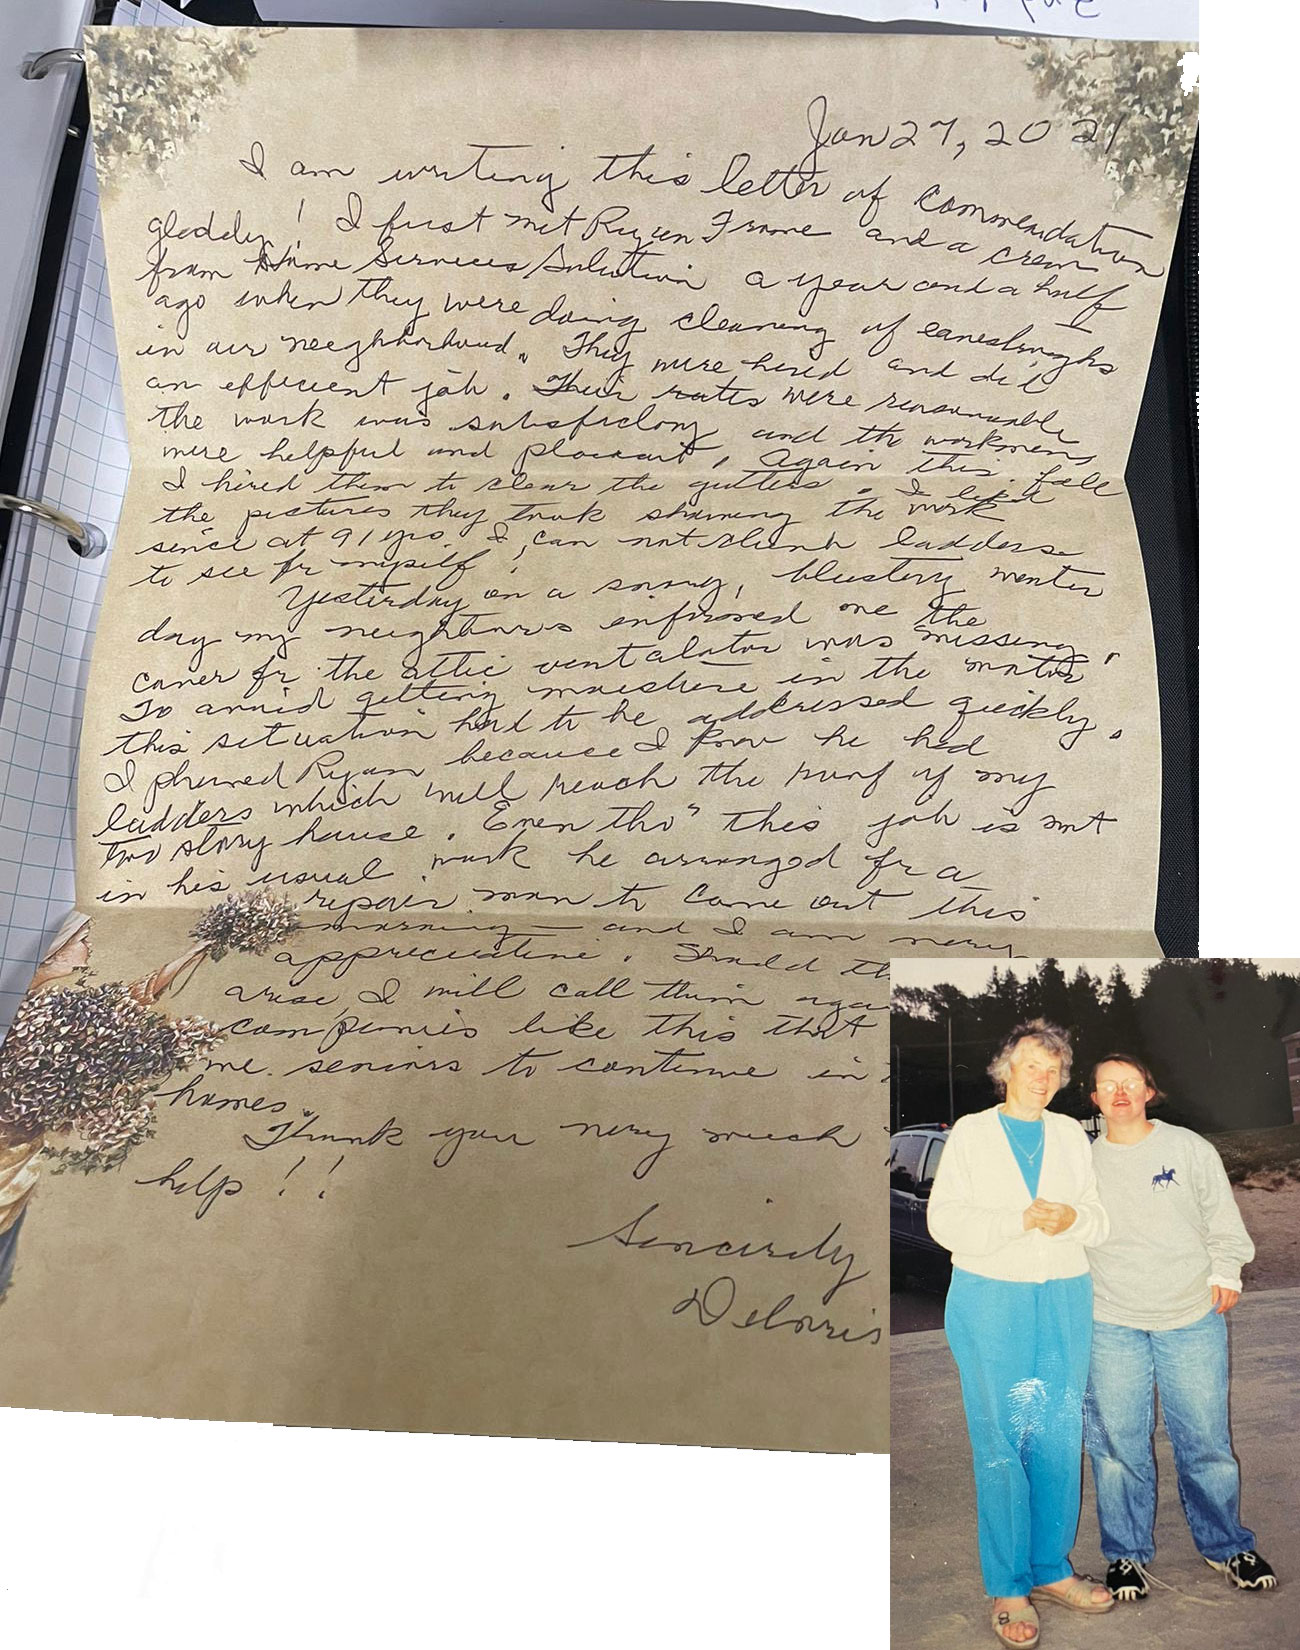 Jan 27, 2021
I am writing this letter of commendation
gladly! I first met Ryan Frame and a crew
from Home Services Solution a year and a half
ago when they were doing cleaning of eavestroughs
in our neighborhood. They were hired and did
an efficient job. Their rates were reasonable
the work was satisfactory and the workmens
were helpful and pleasant. Again this fall
I hired them to clear the gutters. I liked
the pictures they took showing the work
since at 91 yrs. I can not climb ladders
to see for myself!
Yesterday on a snowy, blustery winter
day my neighbours informed me the
cover for the attic ventalator was missing.
To avoid getting moisture in the
this situation had to be addressed quickly.
I phoned Ryan because I know he had
ladders which will reach the roof of my
two story house. Even tho" this job is not
in his usual work he arranged for a
repair man to come out this
morning — and I am very
appreciative. Should
arise I will call them
companies like this that
me seniors to continue in
homes.
Thank you very much
help!!
Sincerely
Delorris